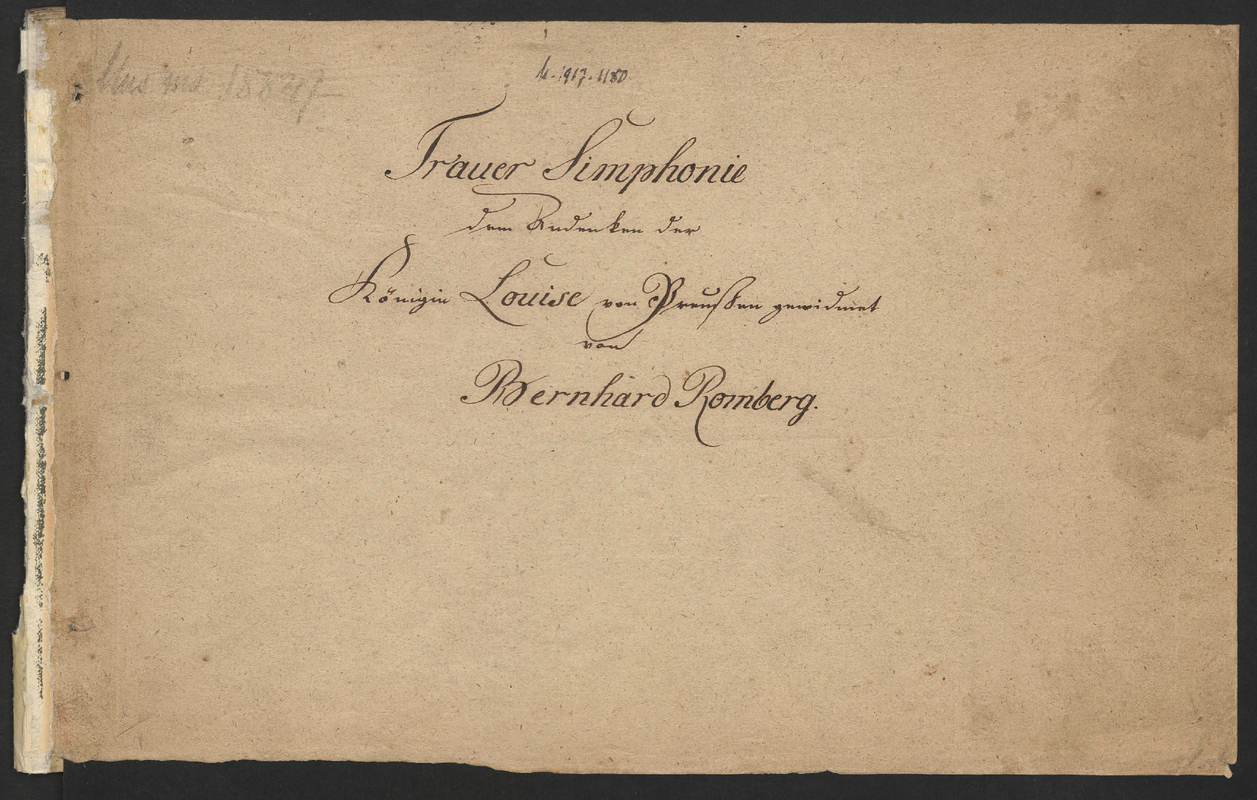 Mus ms 18847
M. 1917. 1180
Trauer Simphonie
dem Andenken der
Königin Louise von Preußen gewidmet
von
Bernhard Romberg.